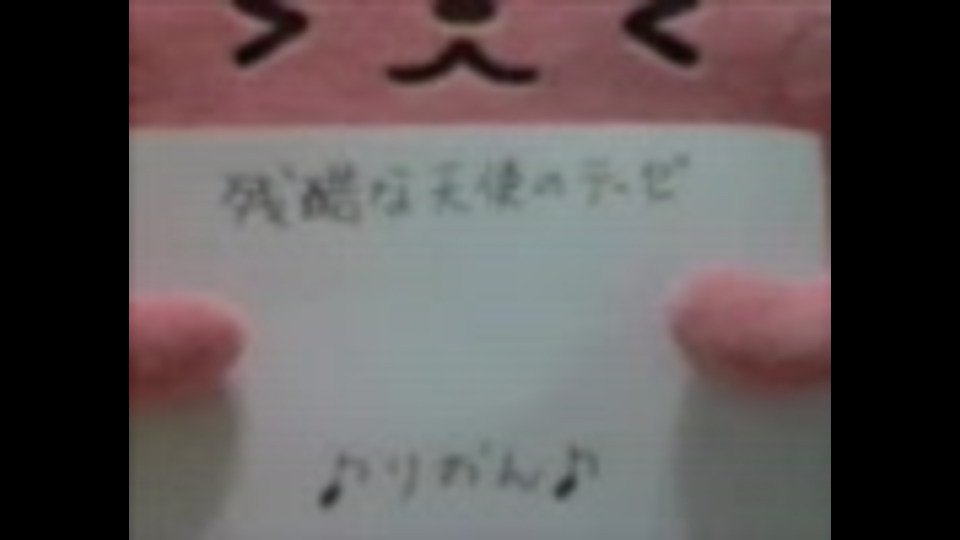 残酷な天使のテーゼ
♪りおん♪